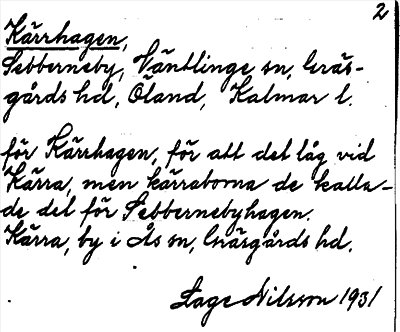 2
Kärrhagen,
Sebberneby, Ventlinge sn, Gräs-
gårds hd, Öland, Kalmar l.
för Kärrhagen, för att det låg vid
Kärra, men kärraborna de kalla-
de det för Sebbernebyhagen.
Kärra, by i Ås sn, Gräsgårds hd.
Lage Nilsson 1931